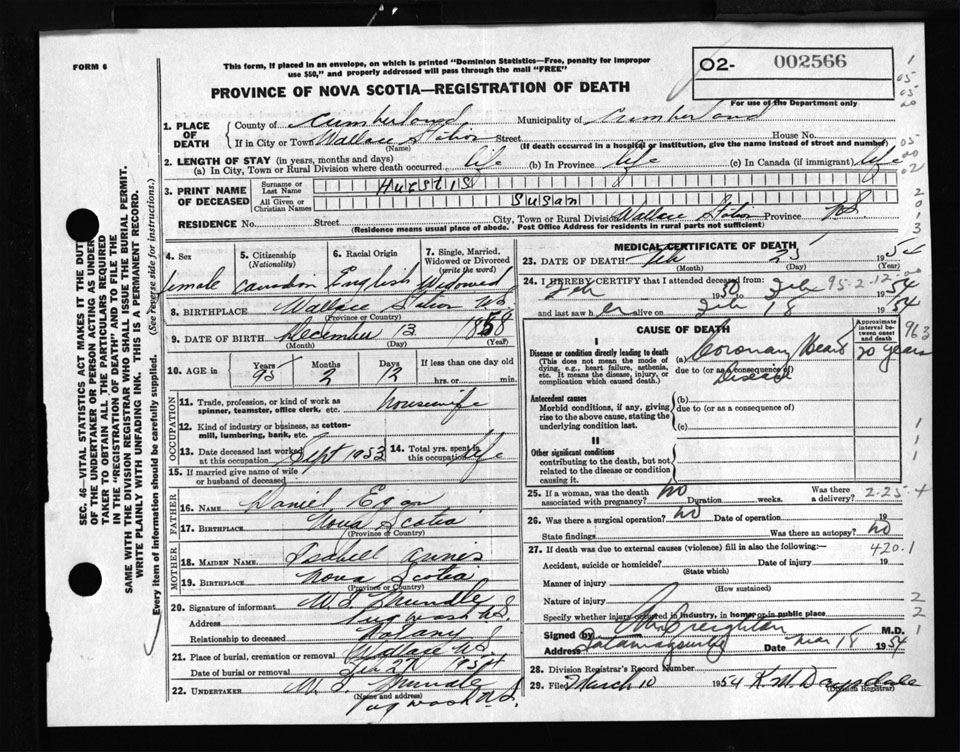 FORM 6
This form, if placed in an envelope, on which is printed "Dominion Statistics—Free, penalty for improper
use $50," and properly addressed will pass through the mail "FREE"
O2- 002566
For use of the Department only
PROVINCE OF NOVA SCOTIA—REGISTRATION OF DEATH
1. PLACE OF DEATH
County of Cumberland Municipality of Cumberland
If in City or Town Wallace Station Street House No.
(Name) (If death occurred in a hospital or institution, give the name instead of street and number)
2. LENGTH OF STAY (in years, months and days)
(a) In City, Town or Rural Division where death occurred life (b) In Province life (c) In Canada (if immigrant) life
3. PRINT NAME OF DECEASED
Surname or Last Name
All Given or Christian Names Susan
RESIDENCE No. Street City, Town or Rural Division Wallace Station Province NS
(Residence means usual place of abode. Post Office Address for residents in rural parts not sufficient)
SEC. 46—VITAL STATISTICS ACT MAKES IT THE DUTY
OF THE UNDERTAKER OR PERSON ACTING AS UNDER-
TAKER TO OBTAIN ALL THE PARTICULARS REQUIRED
IN THE "REGISTRATION OF DEATH" AND TO FILE THE
SAME WITH THE DIVISION REGISTRAR WHO SHALL ISSUE THE BURIAL PERMIT.
WRITE PLAINLY WITH UNFADING INK. THIS IS A PERMANENT RECORD.
Every item of information should be carefully supplied. (See reverse side for instructions.)
4. Sex
female
5. Citizenship (Nationality)
Canadian
6. Racial Origin
English
7. Single, Married, Widowed or Divorced (write the word)
Widowed
8. BIRTHPLACE Wallace Station NS.
(Province or Country)
9. DATE OF BIRTH December 13 1858
(Month) (Day) (Year)
10. AGE in
Years 95 Months 2 Days 12 If less than one day old
hrs. or min.
OCCUPATION
11. Trade, profession, or kind of work as
spinner, teamster, office clerk, etc. housewife
12. Kind of industry or business, as cotton-
mill, lumbering, bank, etc.
13. Date deceased last worked at this occupation Sept 1953
14. Total yrs. spent in this occupation life
15. If married give name of wife
or husband of deceased
FATHER
16. NAME Daniel
17. BIRTHPLACE Nova Scotia
(Province or Country)
MOTHER
18. MAIDEN NAME Isabell
19. BIRTHPLACE Nova Scotia
(Province or Country)
20. Signature of informant
Address Pugwash NS
Relationship to deceased
21. Place of burial, cremation or removal Wallace NS.
Date of burial or removal Feb 27
22. UNDERTAKER
(Name and address)
Pugwash N.S.
MEDICAL CERTIFICATE OF DEATH
23. DATE OF DEATH Feb 25 1954
(Month) (Day) (Year)
24. I HEREBY CERTIFY that I attended deceased from:
Feb
and last saw her alive on Feb 18 1954
CAUSE OF DEATH
Approximate interval between onset and death
I
Disease or condition directly leading to death (a) Coronary Heart 20 years
(This does not mean the mode of dying, e.g., heart failure, asthenia, etc. It means the disease, injury, or complication which caused death.)
due to (or as a consequence of)
Disease
Antecedent causes (b)
Morbid conditions, if any, giving rise to the above cause, stating the underlying condition last.
due to (or as a consequence of)
(c)
II
Other significant conditions
contributing to the death, but not related to the disease or condition causing it.
25. If a woman, was the death associated with pregnancy? No Duration weeks. Was there a delivery?
26. Was there a surgical operation? No Date of operation 19
State findings Was there an autopsy? No
27. If death was due to external causes (violence) fill in also the following:— 420.1
Accident, suicide or homicide? Date of injury 19
(State which)
Manner of injury
(How sustained)
Nature of injury
Specify whether injury occurred in industry, in home or in public place
Signed by Creighton M.D.
Address Tatamagouche Date Mar 18 1954
28. Division Registrar's Record Number
29. Filed March 10 1954 K. M. Drysdale
(Division Registrar)